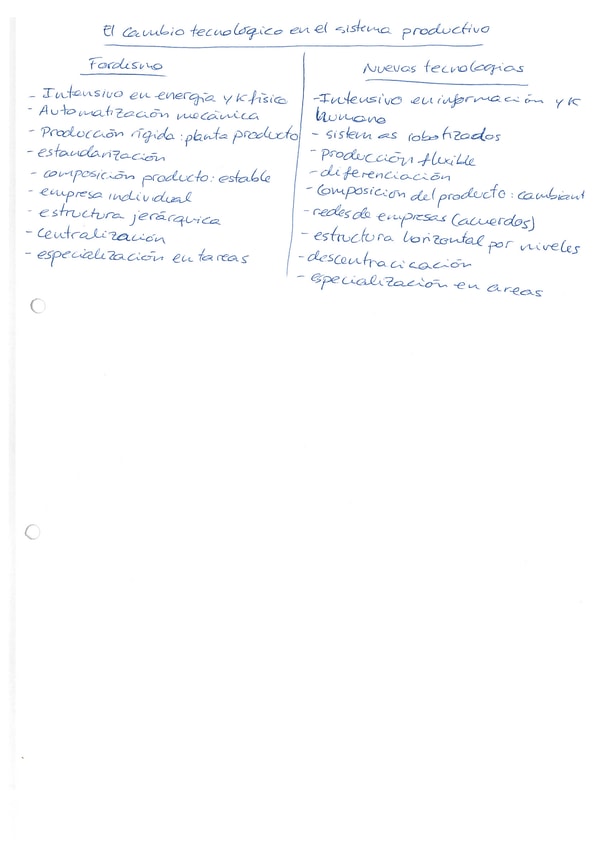 El cambio tecnológico en el sistema productivo
Fordismo
- Intensivo en energía y K físico
- Automatización mecánica
- Producción rígida: planta producto
- estandarización
- composición producto: estable
- empresa individual
- estructura jerárquica
- centralización
- especialización en tareas
Nuevas tecnologías
- Intensivo en información y K
humano
- sistemas robotizados
- producción flexible
- diferenciación
- composición del producto: cambiant
- redes de empresas (acuerdos)
- estructura horizontal por niveles
- descentracicación
- especialización en areas